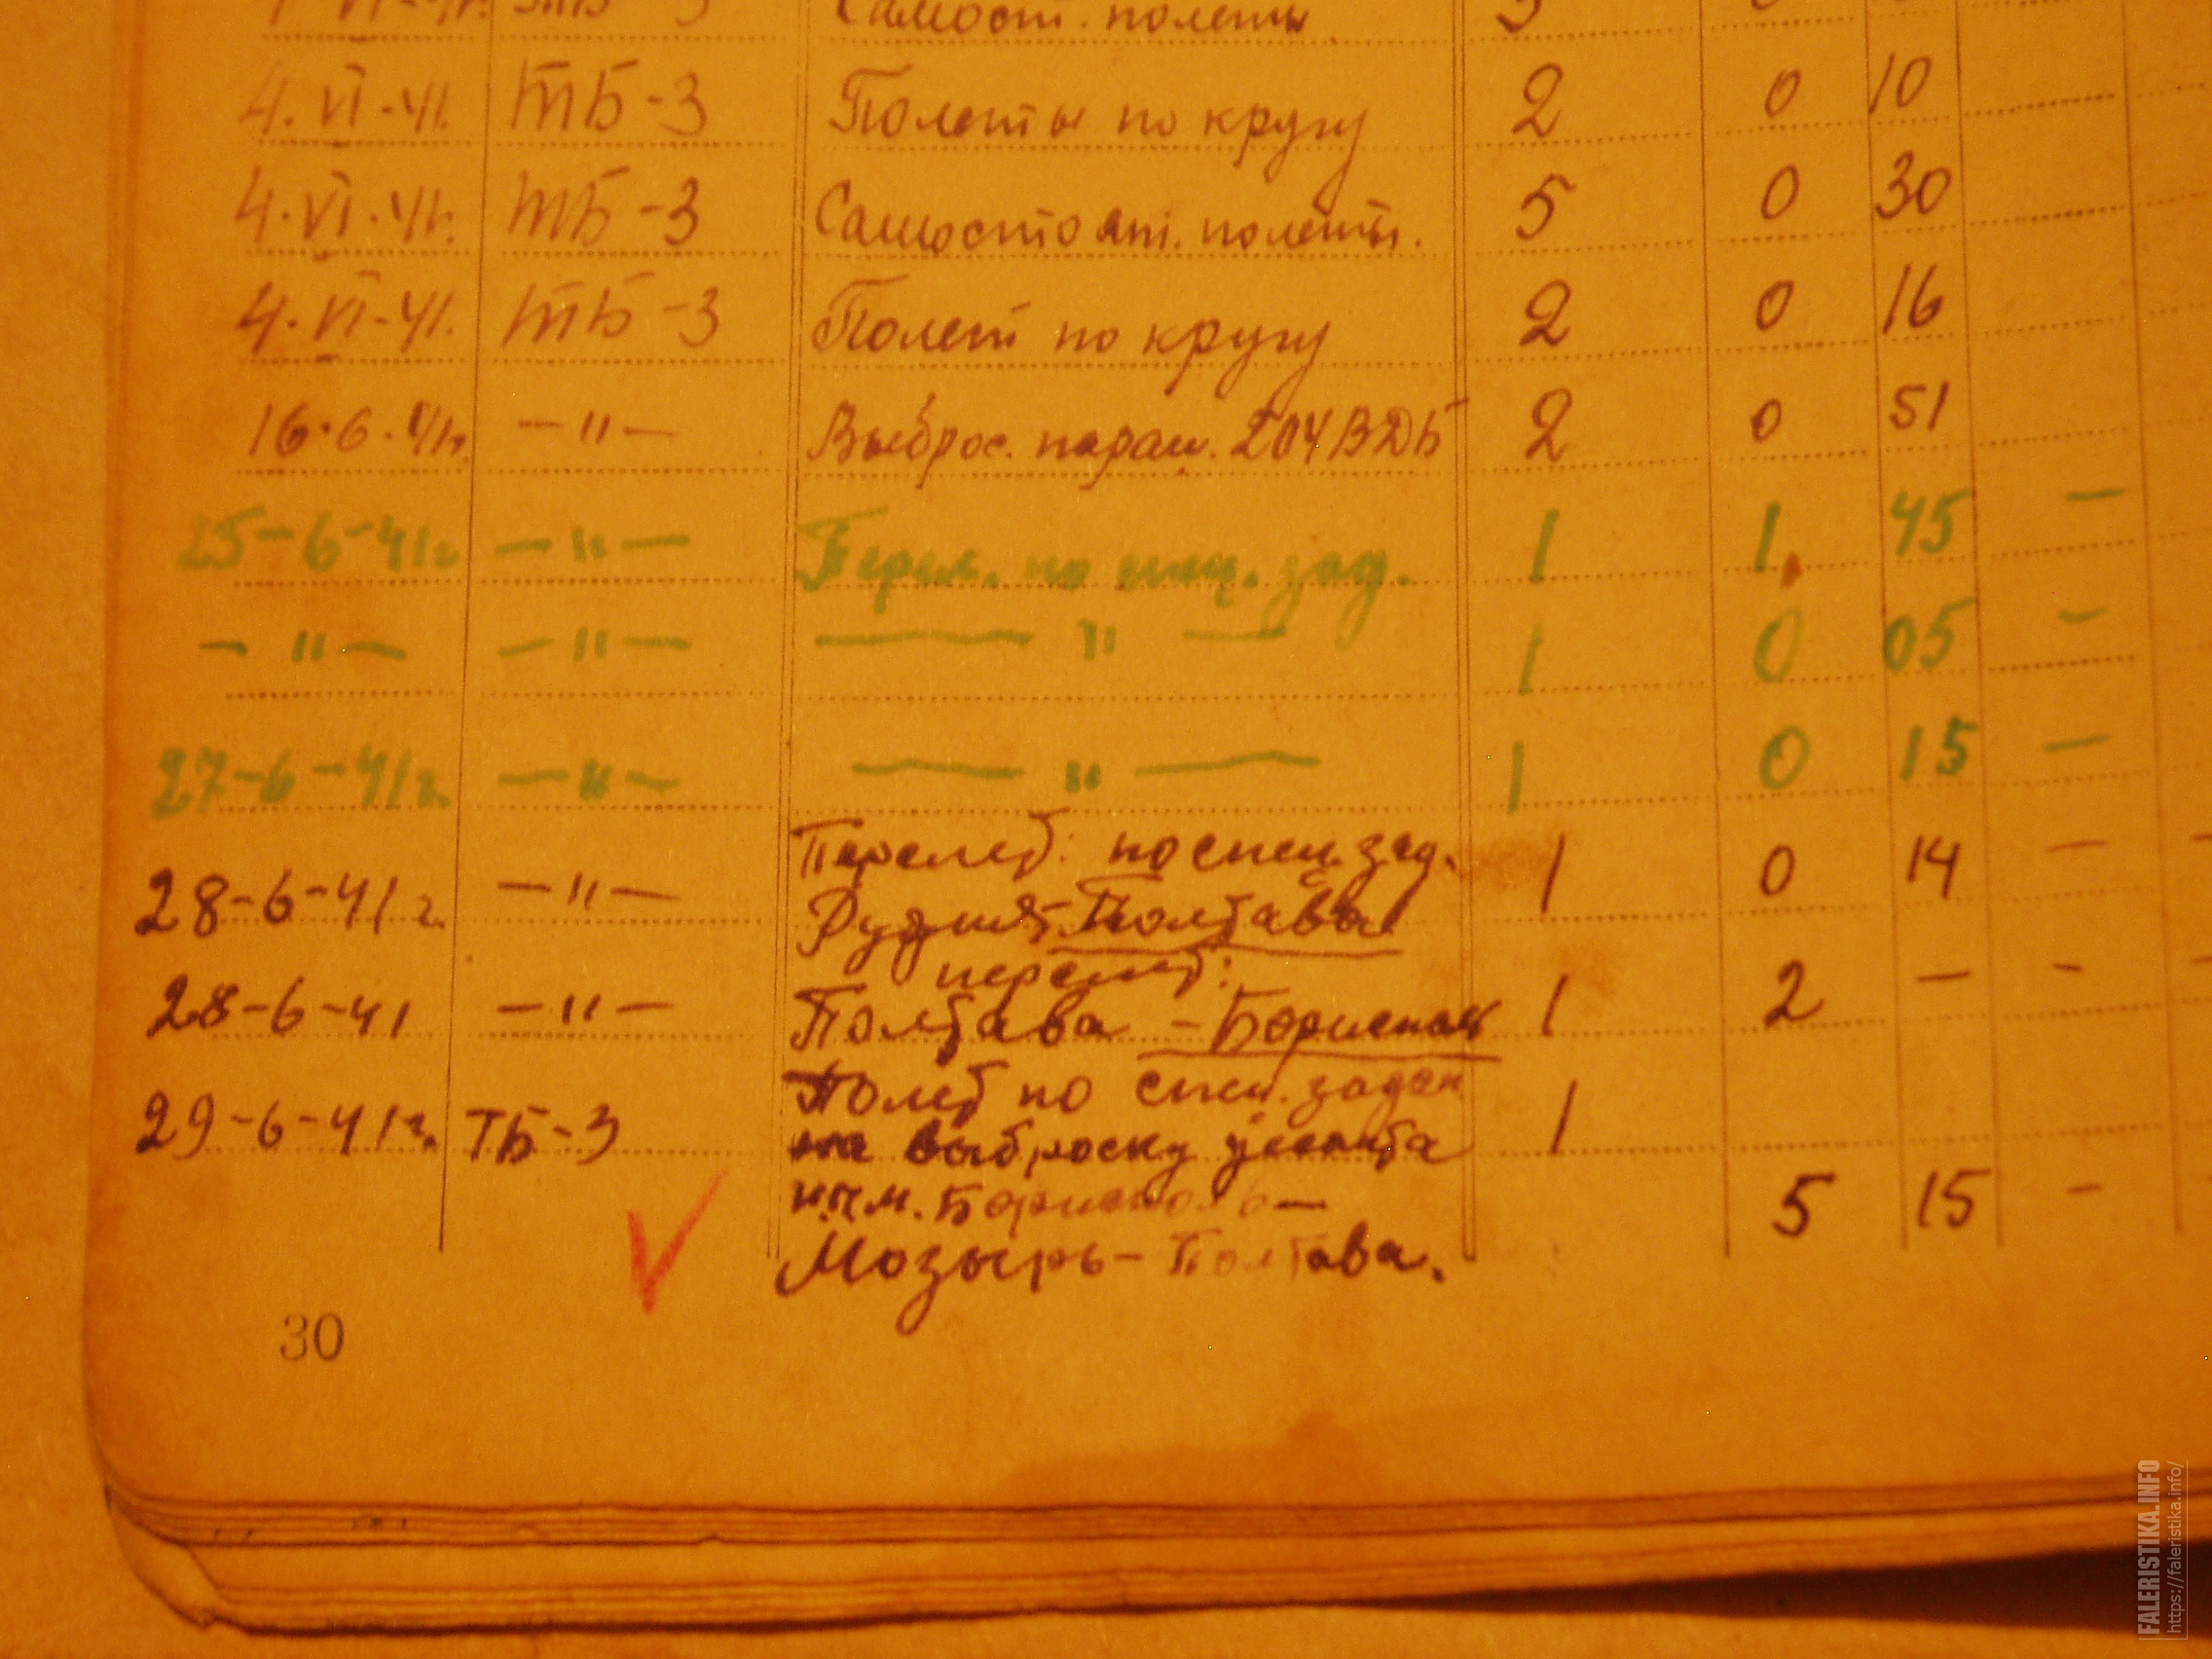 Самост. полеты
4.VI-41. ТБ-3 Полеты по кругу 2 0 10
4.VI.41г. ТБ-3 Самостоят. полеты. 5 0 30
4.VI-41. ТБ-3 Полет по кругу 2 0 16
16.6.41г. —"— Выброс. параш. 204 ВДБ 2 0 51
25-6-41г —"— Перел. по спец. зад. 1 1. 45 —
—"— —"— —"— 1 0 05 —
27-6-41г. —"— —"— 1 0 15 —
Перелет: по спец. зад.
28-6-41г. —"— 1 0 14 —
Полтава
перелет:
28-6-41 —"— Полтава - Борисполь 1 2 — —
Полет по спец. задан
29-6-41г. ТБ-3 на выброску десанта 1
Борисполь — 5 15 —
Мозырь - Полтава.
30
FALERISTIKA.INFO
https://faleristika.info/